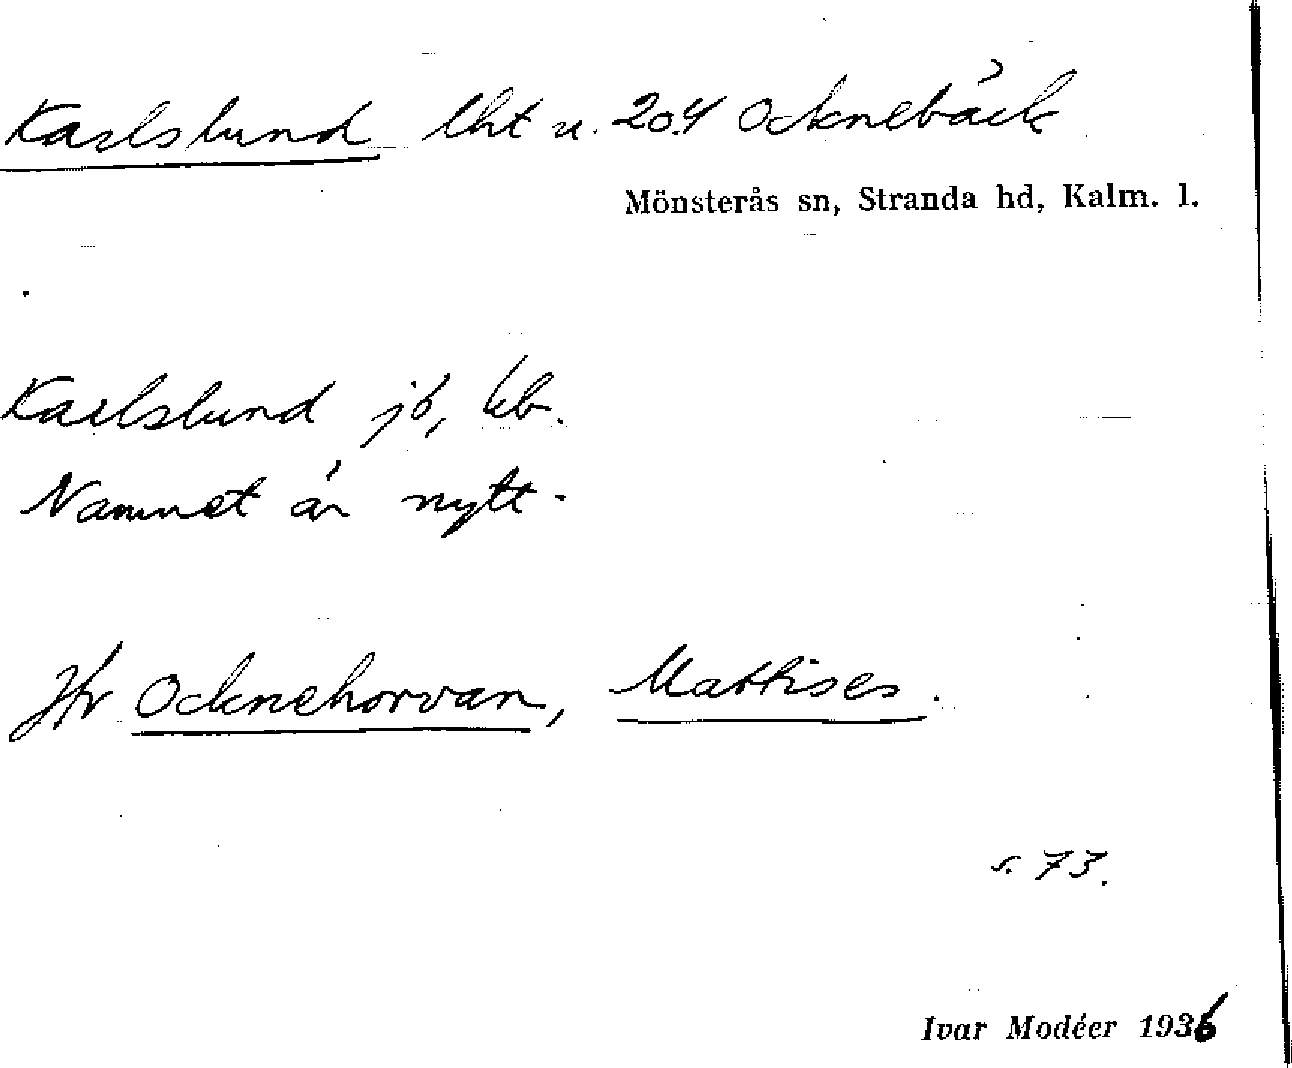 Karlslund lht u. 2o.4 Ocknebäck
Mönsterås sn, Stranda hd, Kalm. l.
Karlslund jb, kb.
Namnet är nytt.
Jfr Ocknehorvan, Mattises.
s. 73.
Ivar Modéer 1936